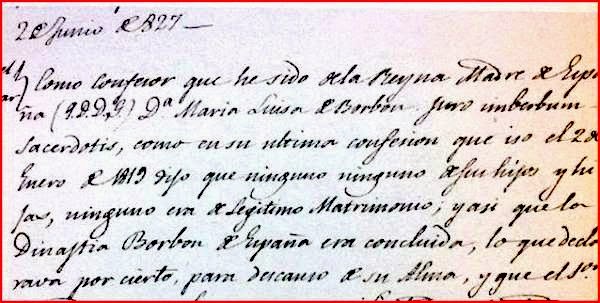 2 de Junio de 1827 —
Como confesor que he sido dela Reyna Madre de Espa
ña (q.D.D.g.) Dª Maria Luisa de Borbon. Juro imberbum
sacerdotis, como en su ultima confesion que iso el 2 de
Enero de 1819 dijo que ninguno ninguno de sus hijos y hi
jas, ninguno era de Legitimo Matrimonio; y asi que la
Dinastia Borbon de España era concluida, lo que decla
rava por cierto, para descanso de su Alma, y que el Sor.